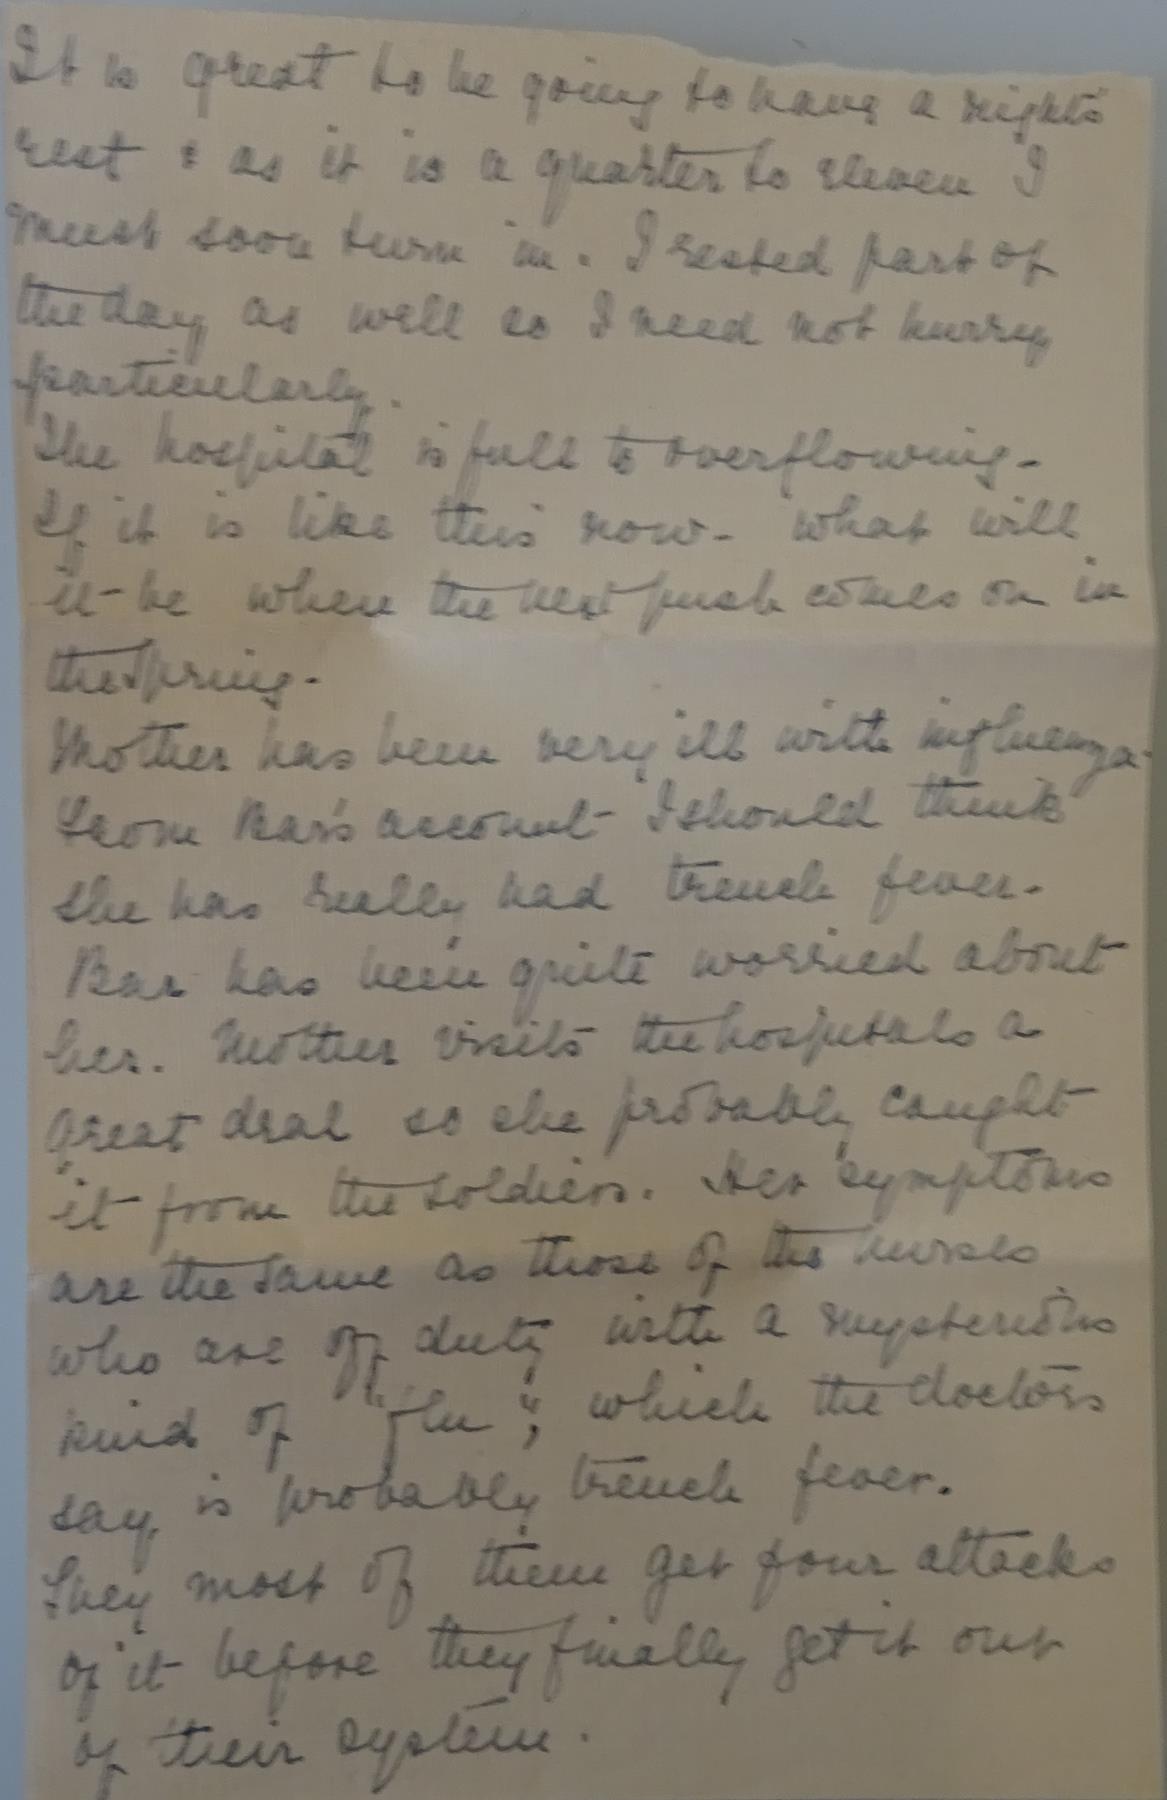 It is great to be going to have a nights
rest & as it is a quarter to eleven I
must soon turn in. I rested part of
the day as well so I need not hurry
particularly.
The hospital is full to overflowing -
If it is like this now - what will
it be when the next push comes on in
the Spring.
Mother has been very ill with influenza.
From Bar's account I should think
she has really had trench fever.
Bar has been quite worried about
her. Mother visits the hospitals a
great deal so she probably caught
it from the soldiers. Her symptoms
are the same as those of the nurses
who are off duty with a mysterious
kind of "flu", which the doctors
say is probably trench fever.
They most of them get four attacks
of it before they finally get it out
of their system.